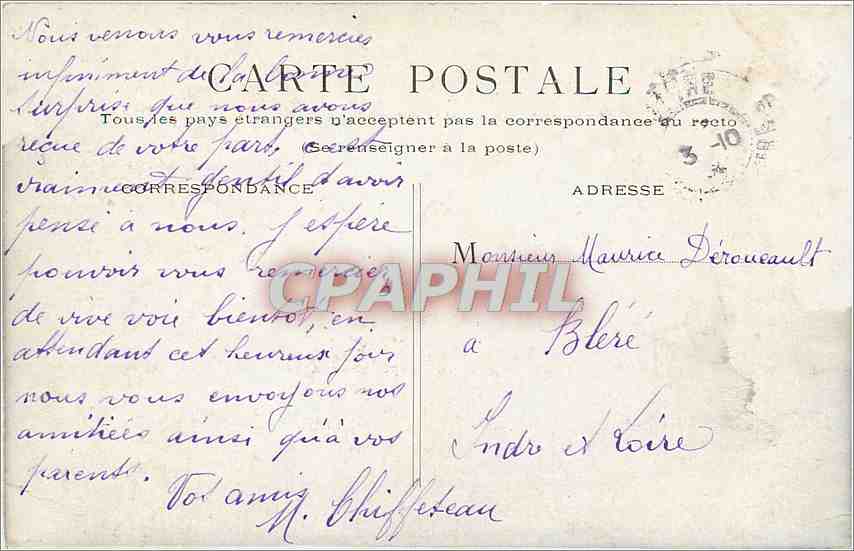 Nous venons vous remercier
infiniment de la bonne
surprise que nous avons
reçue de votre part, c'est
vraiment gentil d'avoir
pensé à nous. J'espère
pouvoir vous remercier
de vive voie bientôt, en
attendant cet heureux jour
nous vous envoyons nos
amitiées ainsi qu'à vos
parents.
Vos amis
M. Chiffeteau
CARTE POSTALE
Tous les pays étrangers n'acceptent pas la correspondance au recto
(Se renseigner à la poste)
CORRESPONDANCE
ADRESSE
Monsieur Maurice Déroueault
a Bléré
Indre et Loire
3 -10
CPAPHIL